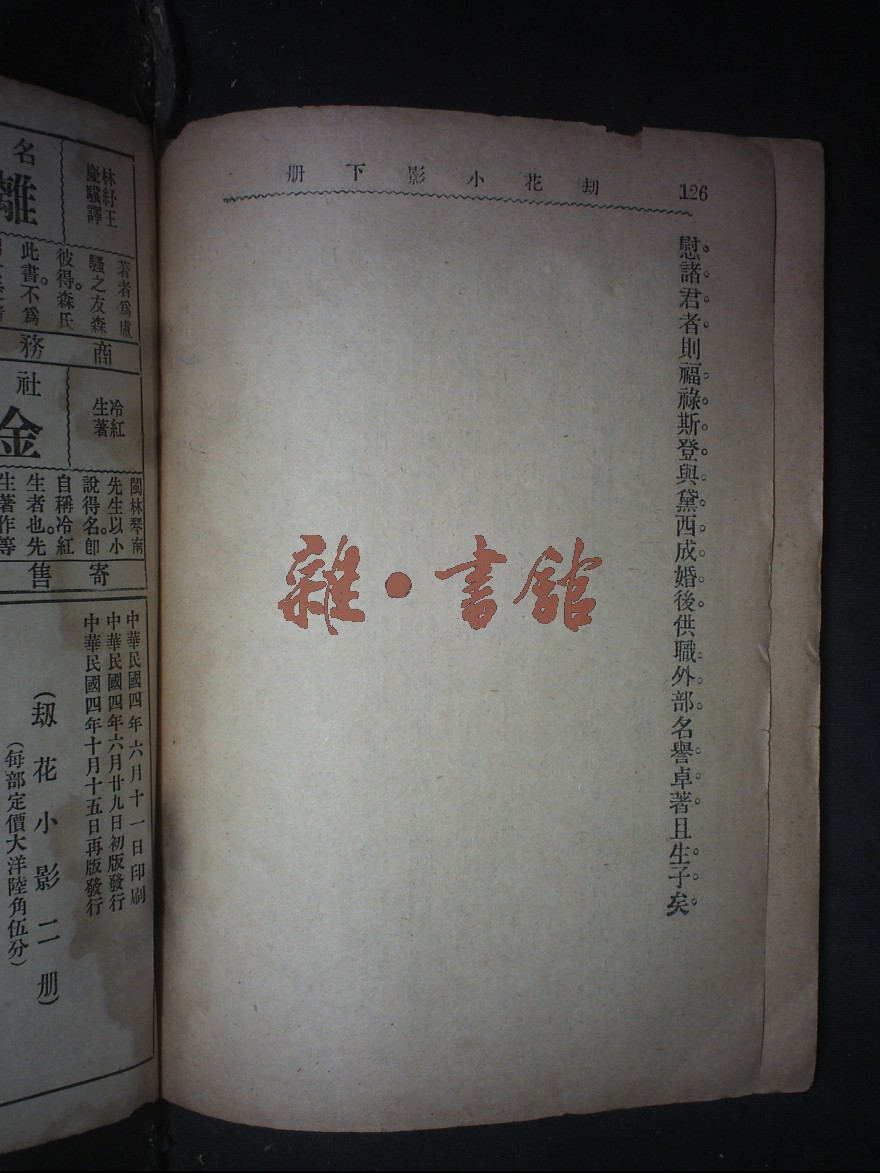 126
劫花小影下册
慰諸君者則福祿斯登與黛西成婚後供職外部名譽卓著且生子矣
雜·書館
名
離
林紓王
慶驥譯
著者爲盧
騷之友森
彼得森氏
此書不爲
商務
社
金
冷紅
生著
閩林琴南
先生以小
說得名卽
自稱冷紅
生者也先
生著作等
寄售
中華民國四年六月十一日印刷
中華民國四年六月廿九日初版發行
中華民國四年十月十五日再版發行
(劫花小影二册)
(每部定價大洋陸角伍分)